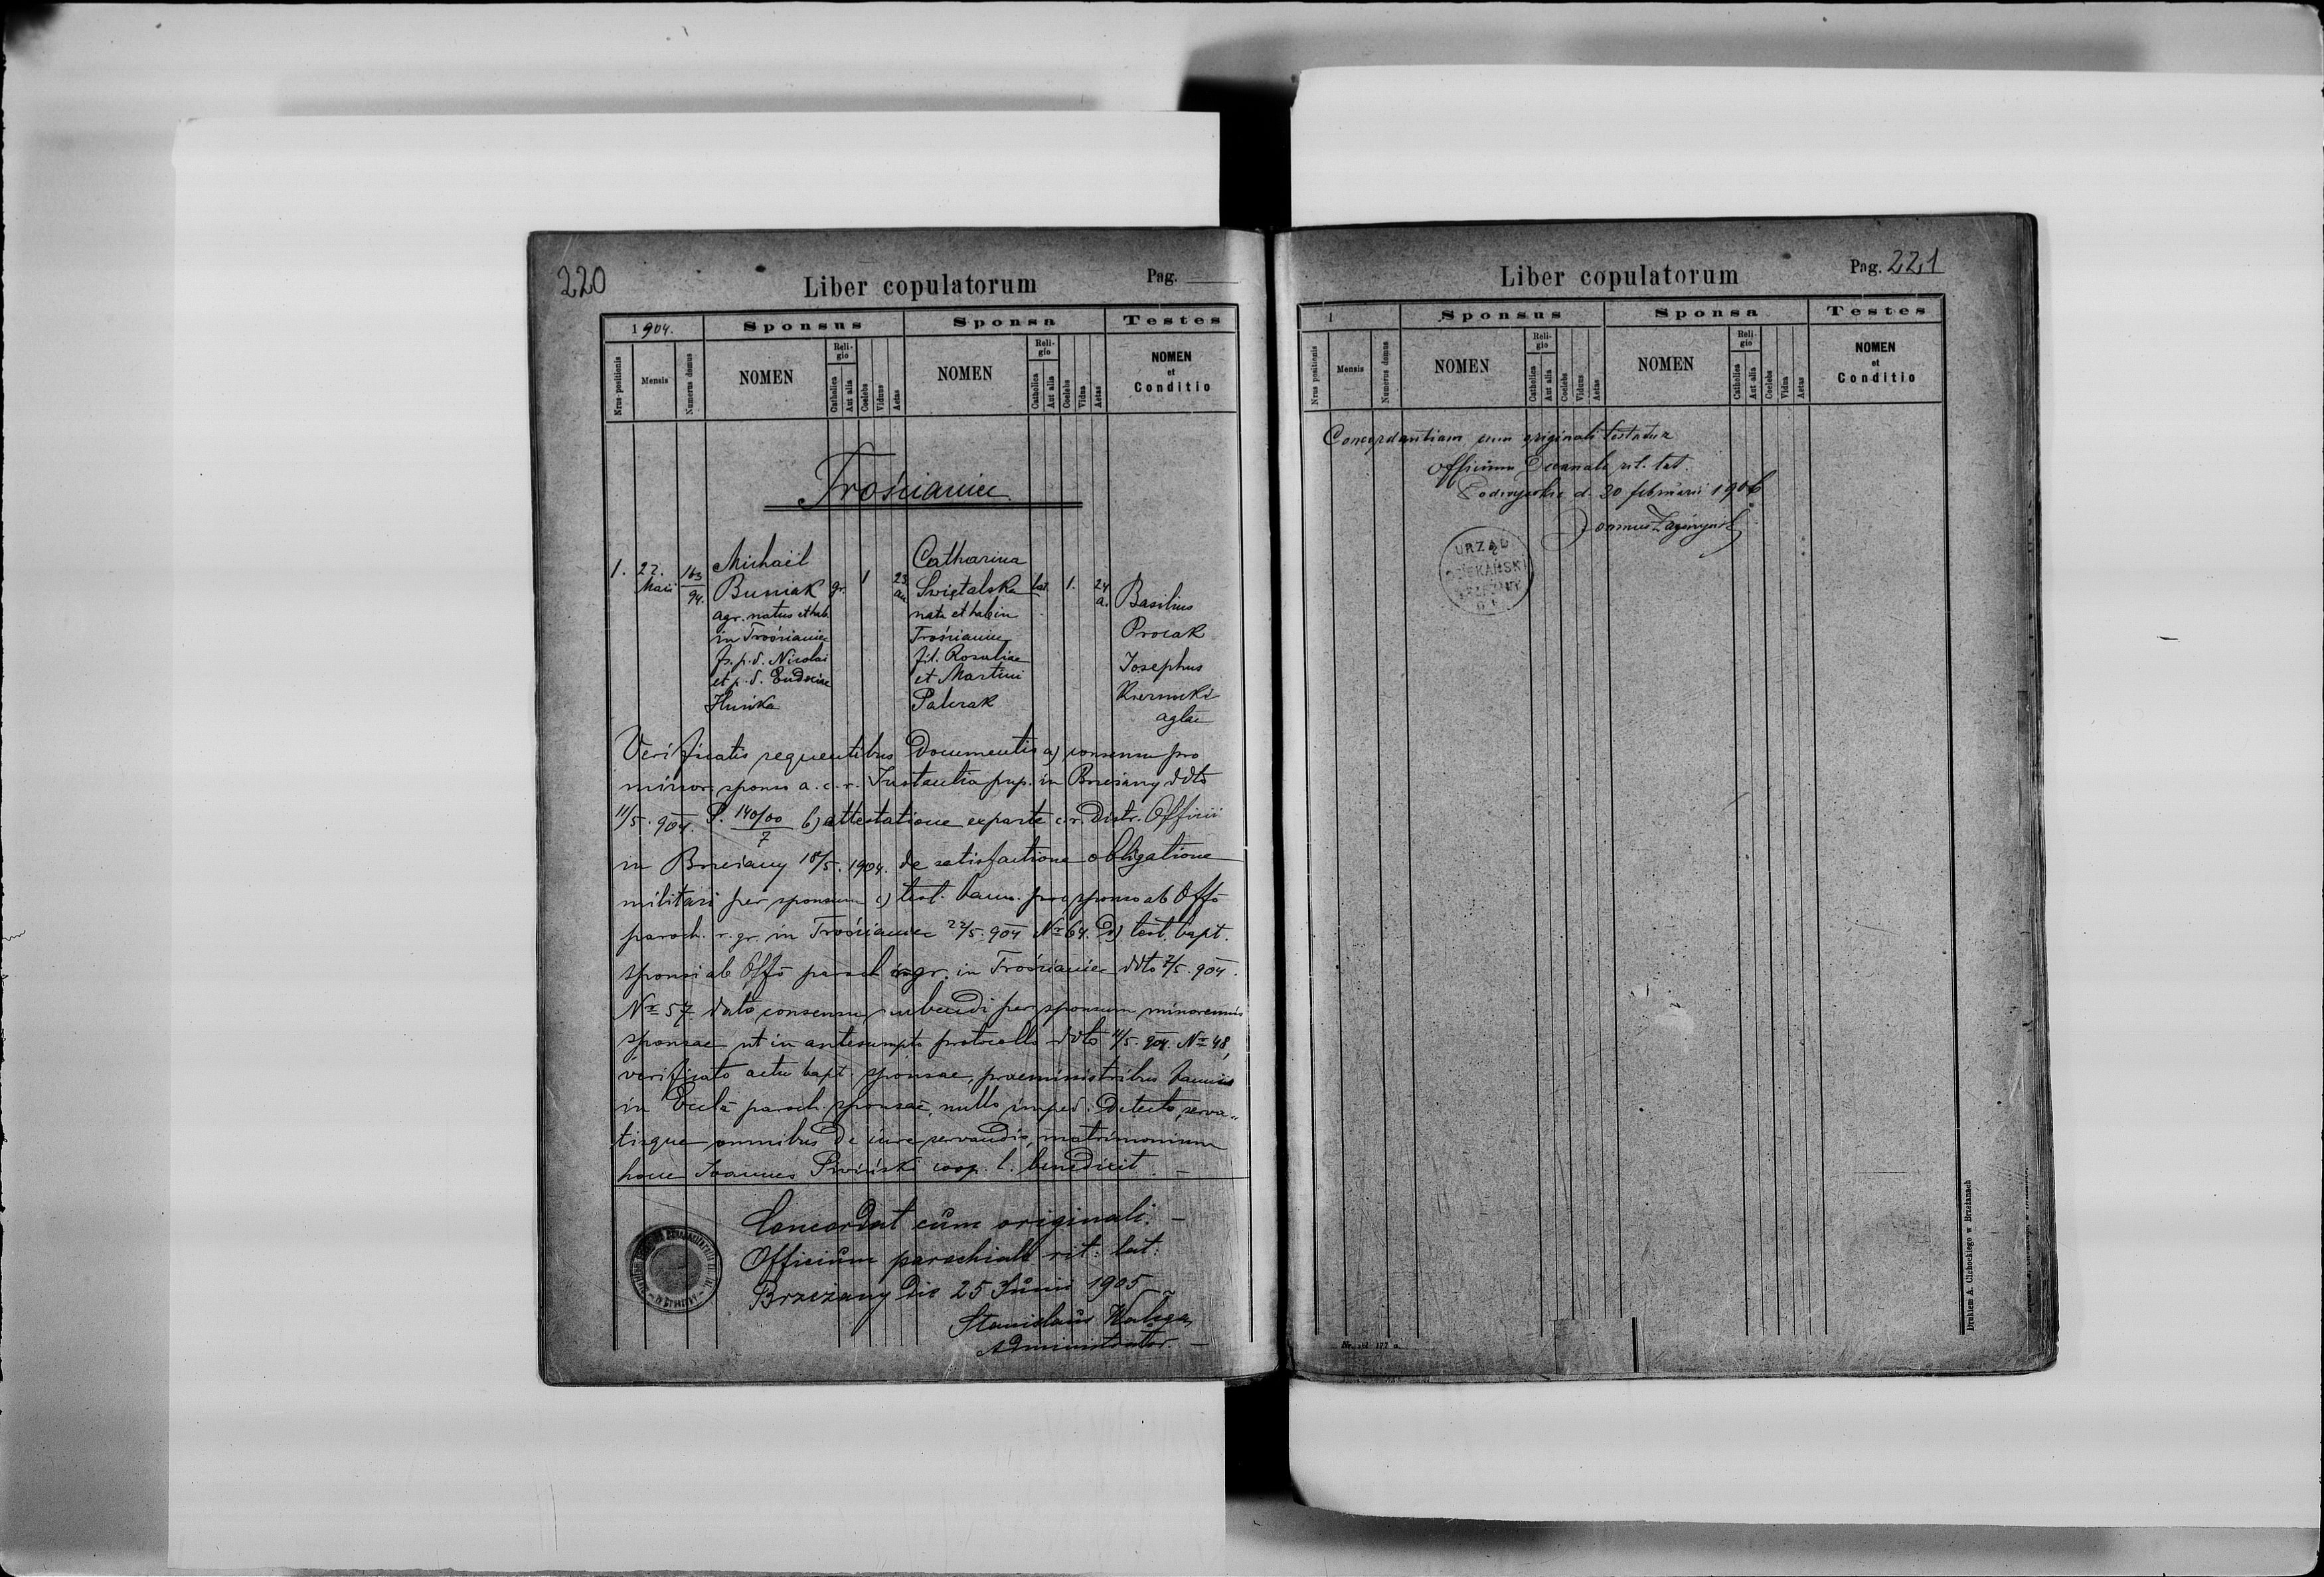 220
Liber copulatorum
Pag.
1904.
Sponsus
Sponsa
Testes
Nrus positionis
Mensis
Numerus domus
NOMEN
Religio
Catholica
Aut alia
Coelebs
Viduus
Aetas
NOMEN
Religio
Catholica
Aut alia
Coelebs
Vidua
Aetas
NOMEN
et
Conditio
Trościaniec
1. 22. Maii 163/94.
Michaël
Buniak gr. 1 23 an
agr. natus et hab.
in Trościaniec
fs. p. d. Nicolai
et p. d. Eudociae
Husika
Catharina
Świętalska lat. 1. 24 a.
nata et hab in
Trościaniec
fil. Rosaliae
et Martini
Palczak
Basilius
Procak
Josephus
aglae
Verificatis sequentibus documentis a) consensu pro
minor. sponso a c. r. Instantia pup. in Brzeżany ddto
11/5. 904. P. 140/00/7 b) attestatione ex parte c. r. Distr. Officii
in Brzeżany 18/5. 1904. de satisfactione obligatione
militari per sponsum c) test. bann. pro sponso ab Offo
paroch. r. gr. in Trościaniec 22/5. 904 No 64. d) test. bapt.
sponsi ab Offo paroch gr. in Trościaniec ddto 7/5. 904.
No 57 dato consensu nubendi per sponsum
sponsae ut in antesumpto protocollo ddto 11/5. 904. No 48,
verificato actu bapt. sponsae, praeministribus bannis
in Eccla paroch. sponsae, nullo imped. detecto, serva"
tisque omnibus de iure servandis, matrimonium
hocce Joannes coop. l. benedixit. –
Concordat cum originali. –
Officium parochiale rit: lat:
Brzeżany die 25 Junii 1905
Stanislaus
Administrator. –
Liber copulatorum
Pag. 221
1
Sponsus
Sponsa
Testes
Nrus positionis
Mensis
Numerus domus
NOMEN
Religio
Catholica
Aut alia
Coelebs
Viduus
Aetas
NOMEN
Religio
Catholica
Aut alia
Coelebs
Vidua
Aetas
NOMEN
et
Conditio
Concordantiam cum originali testatur
Officium Decanale rit. lat.
d. 20 februarii 1906
URZĄD
DZIEKAŃSKI
Drukiem A. Cichockiego w Brzeżanach